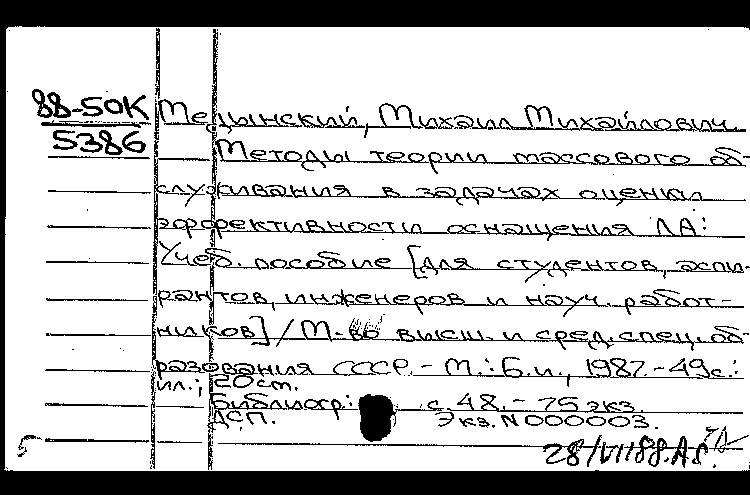 88-50К
5386
Медынский, Михаил Михайлович
Методы теории массового об-
служивания в задачах оценки
эффективности оснащения ЛА:
Учеб. пособие [для студентов, аспи-
рантов, инженеров и науч. работ-
ников] / М-во высш. и сред. спец. об-
разования СССР. - М.: Б.и., 1987. - 49с.:
ил.; 20 ст.
Библиогр.: с. 48. - 75 экз.
ДСП. Экз. N 000003.
5 28/VII 88. А8.